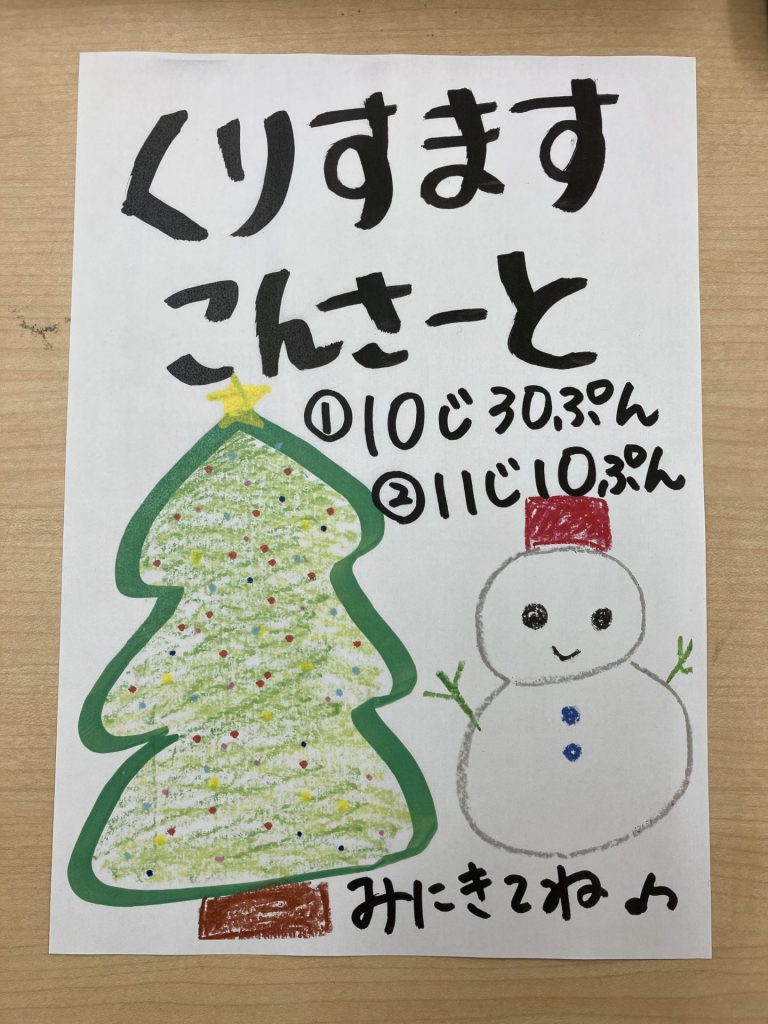 くりすます
こんさーと
①10じ30ぷん
②11じ10ぷん
みにきてね♪